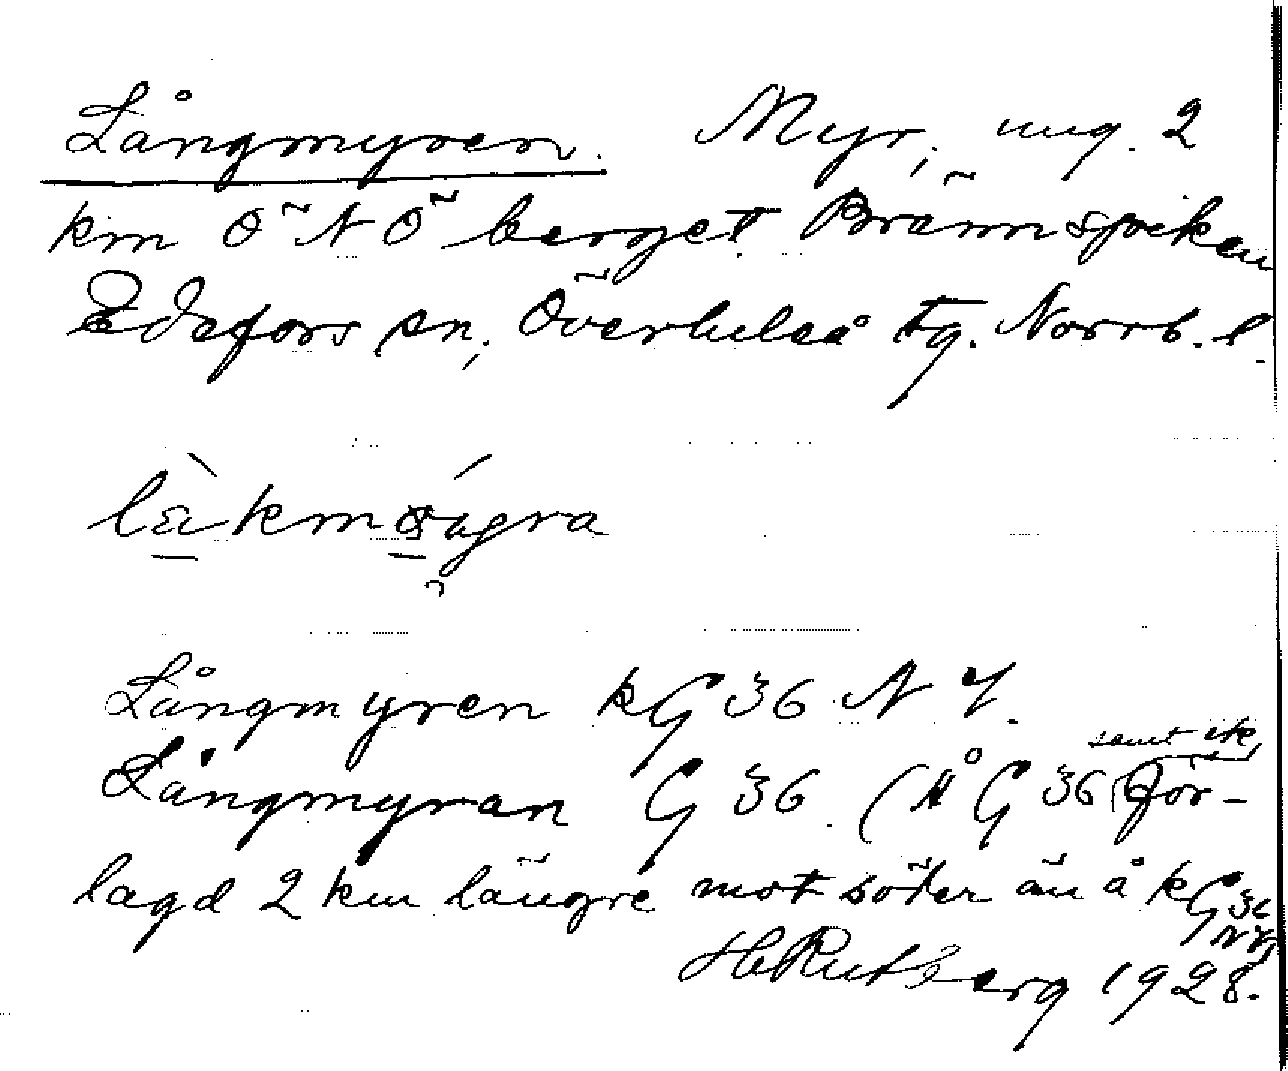 Långmyren. Myr, ung. 2
km ÖNÖ berget Brännspiken
Edefors sn, Överluleå tg. Norrb. l.
Långmyren kG 36 NV.
Långmyran G 36 (Å G 36 för-
lagd 2 km längre mot söder än å kG 36
NV)
H Rutberg 1928.